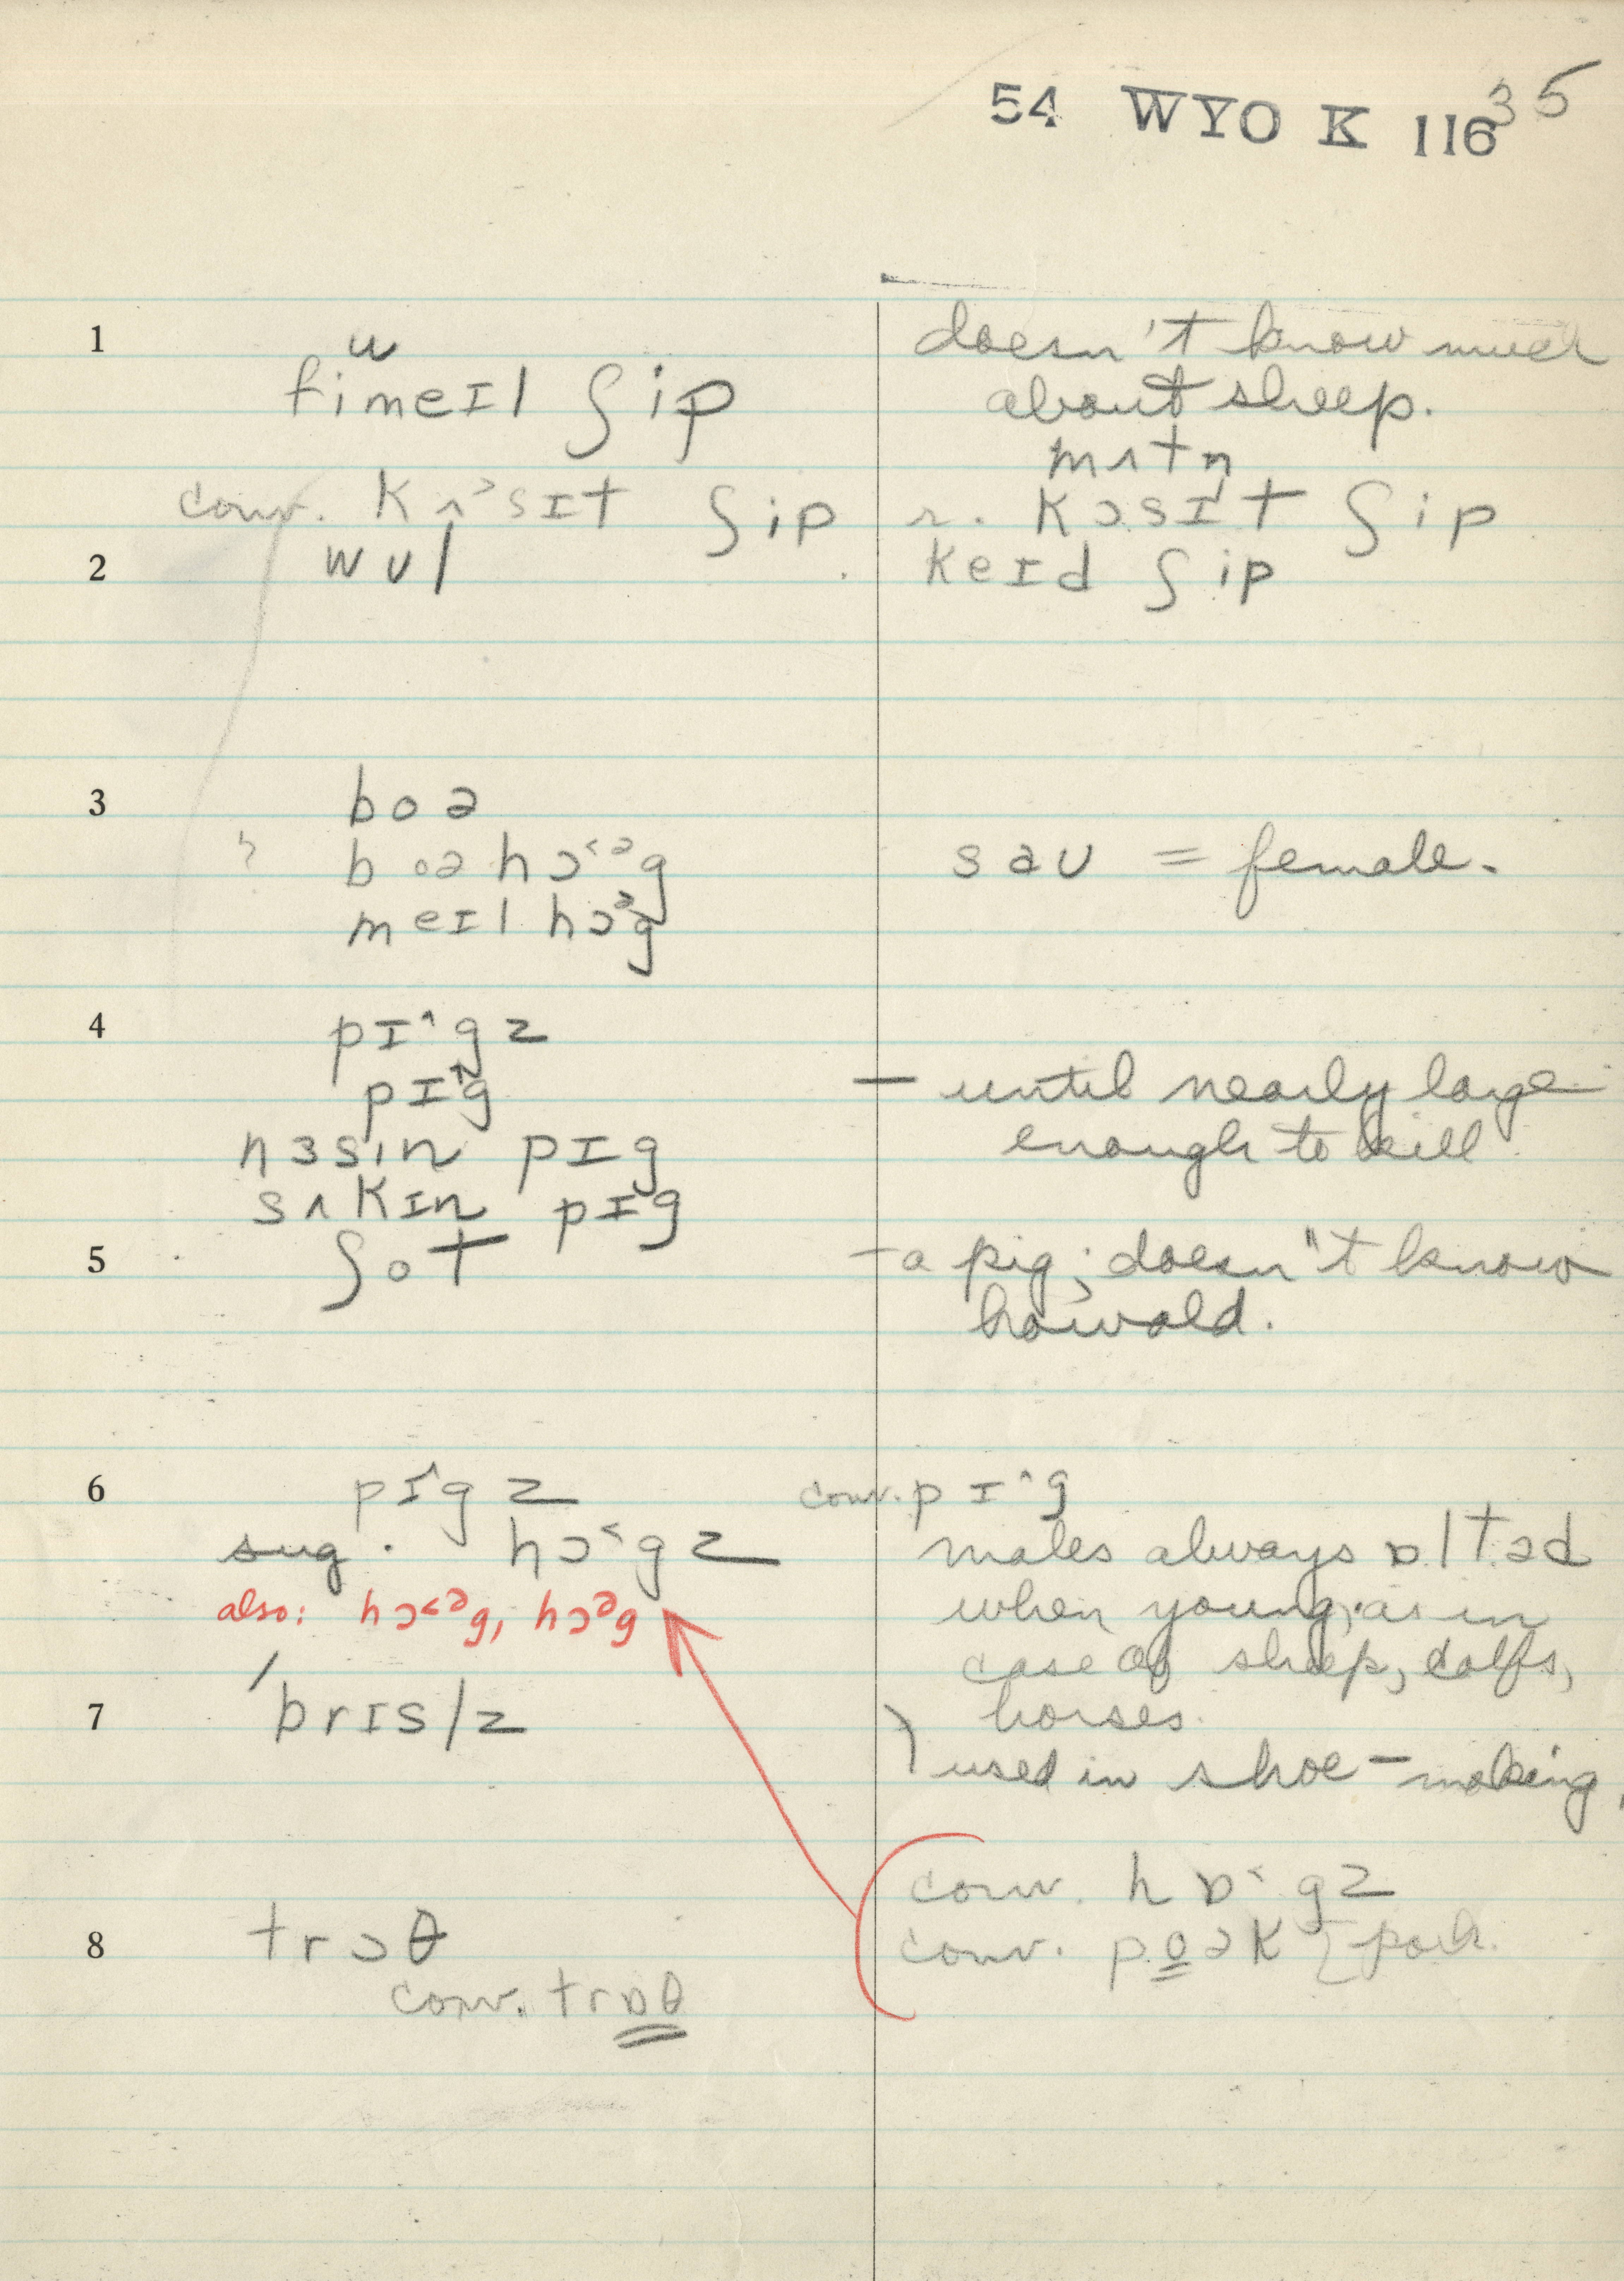 54 WYO K 116 35
1
u
fimeɪl ʃip
doesn't know much
about sheep.
mʌtn̩
conv. kʌᵓsɪt ʃip
r. kɔsɪt ʃip
2
wʊl
keɪd ʃip
3
boə
? boə hɔ˂ᵊg
sɑʊ = female.
meɪl hɔᵊg
4
pɪ^gz
pɪ^g
— until nearly large
enough to kill.
nɜsin pɪg
sʌkɪn pɪg
5
ʃot
— a pig; doesn't know
how old.
6
pɪ^gz
conv. pɪ^g
sug. hɔ˂gz
males always ɒltəd
when young, as in
case of sheep, calfs,
horses.
also: hɔ˂ᵊg, hɔᵊg
7
'brɪslz
used in shoe-making,
conv. hɒ˂gz
8
trɔθ
conv. poək pork.
conv. trɒθ